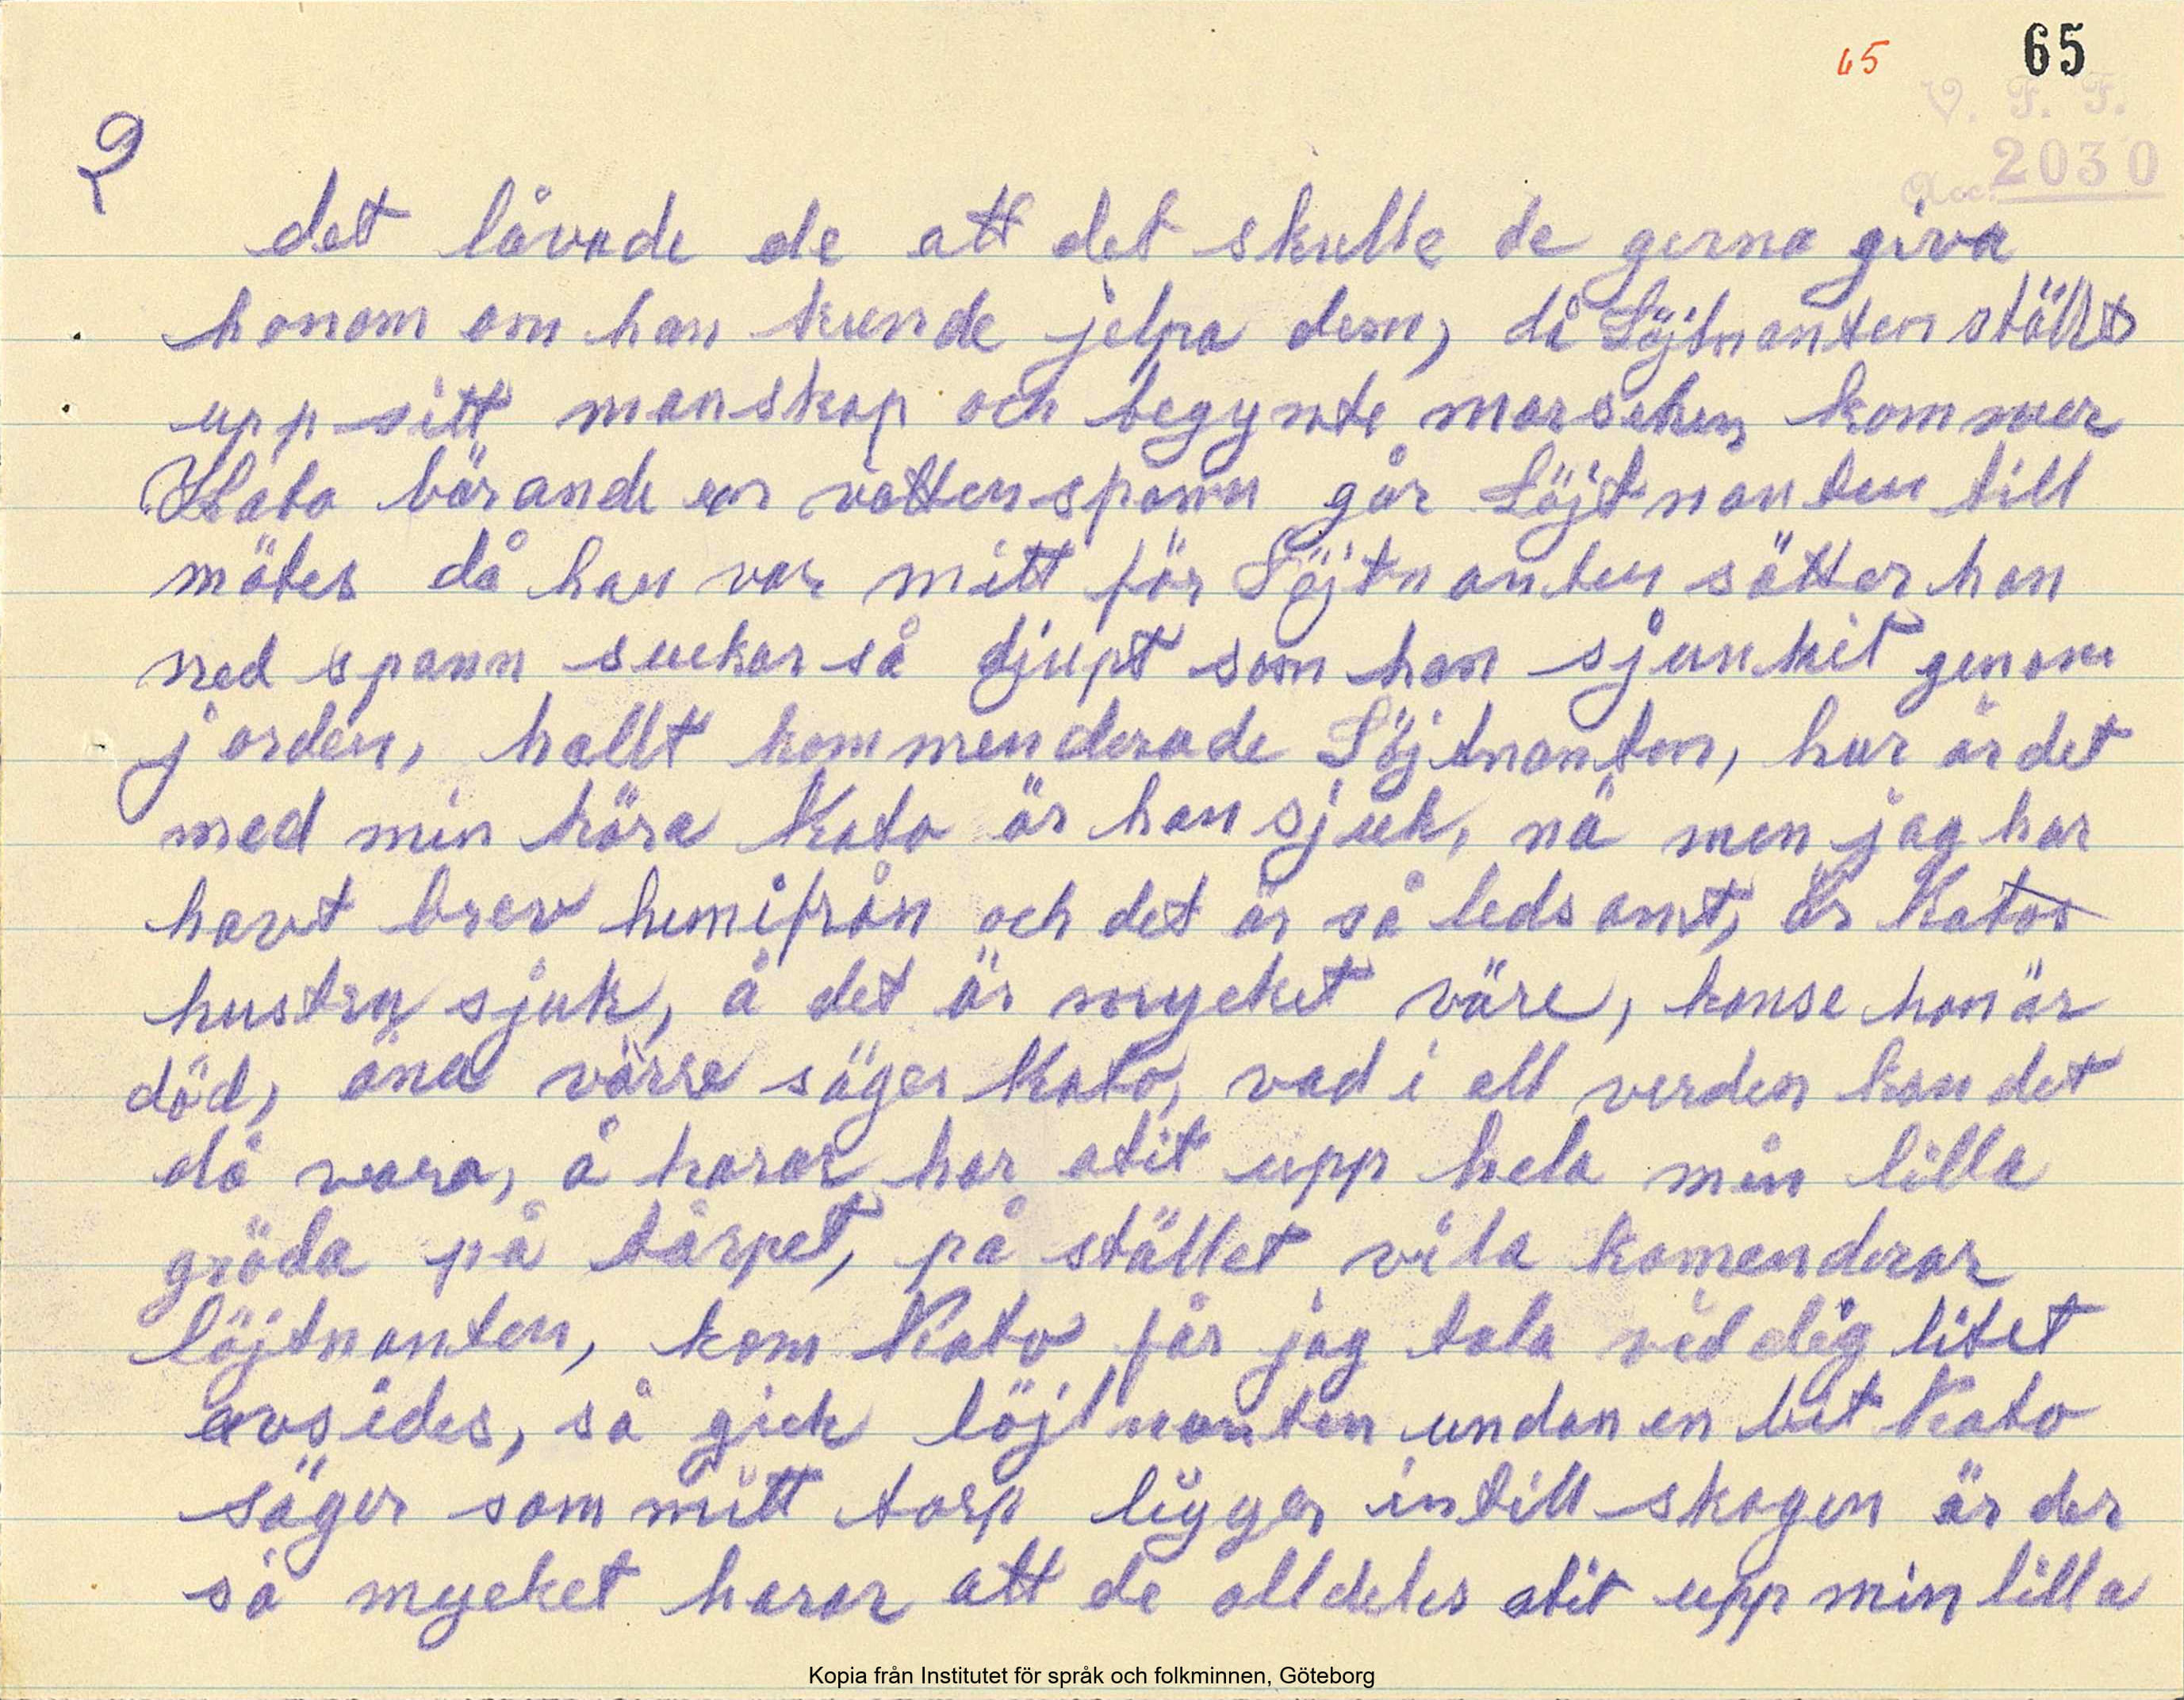 65 65
V. F. F.
Acc. 2030
2
det låvade de att det skulle de gerna giva
honom om han kunde jelpa dem, då Löjtnanten ställt
upp sitt manskap och begynte marschen kommer
Kato bärande en vattenspann går Löjtnanten till
mötes då han var mitt för Löjtnanten sätter han
ned spann suckar så djupt som han sjunkit genom
jorden, hallt kommenderade Löjtnanten, hur är det
med min kära Kato är han sjuk, nä men jag har
havt brev hemifrån och det är så ledsamt, är Katos
hustru sjuk, å det är mycket väre, kanse hon är
död, ända värre säger Kato, vad i all verden kan det
då vara, å harar har ätit upp hela min lilla
gröda på tårpet, på stället vila komenderar
löjtnanten, kom Kato får jag tala vid dig litet
avsides, så gick löjtnanten undan en bit Kato
säger som mitt torp ligger intill skogen är der
så mycket harar att de alldeles ätit upp min lilla
Kopia från Institutet för språk och folkminnen, Göteborg